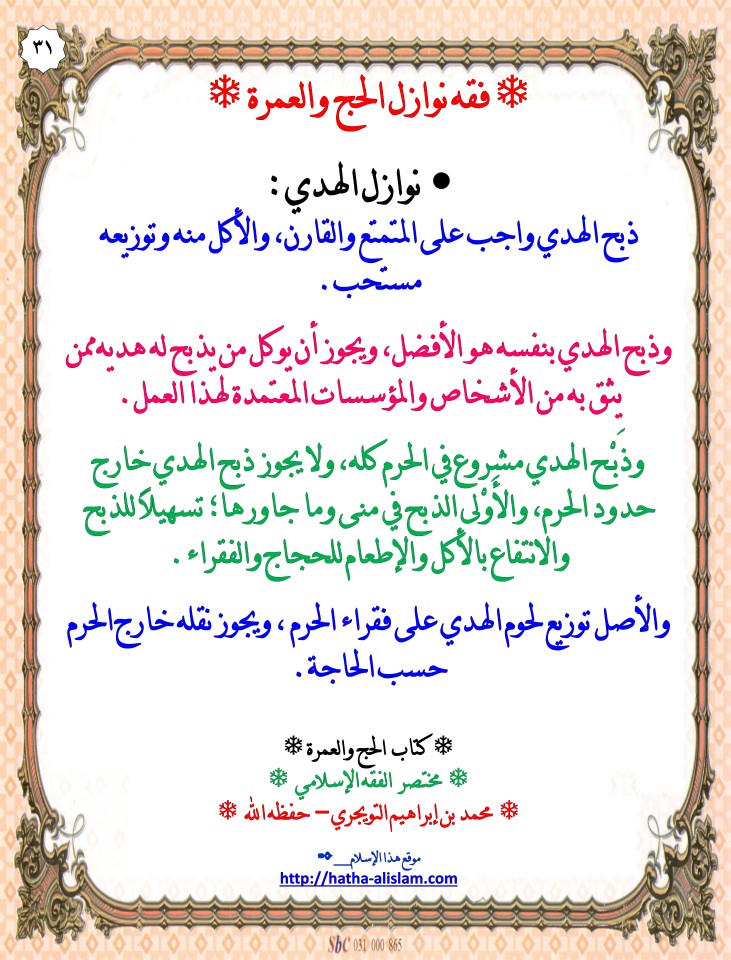 ٣١
❄ فقه نوازل الحج والعمرة ❄
● نوازل الهدي :
ذبح الهدي واجب على المتمتع والقارن، والأكل منه وتوزيعه
مستحب .
وذبح الهدي بنفسه هو الأفضل، ويجوز أن يوكل من يذبح له هديه ممن
يثق به من الأشخاص والمؤسسات المعتمدة لهذا العمل .
وذَبْح الهدي مشروع في الحرم كله، ولا يجوز ذبح الهدي خارج
حدود الحرم، والأَوْلى الذبح في منى وما جاورها؛ تسهيلاً للذبح
والانتفاع بالأكل والإطعام للحجاج والفقراء .
والأصل توزيع لحوم الهدي على فقراء الحرم ، ويجوز نقله خارج الحرم
حسب الحاجة .
❄ كتاب الحج والعمرة ❄
❄ مختصر الفقه الإسلامي ❄
❄ محمد بن إبراهيم التويجري – حفظه الله ❄
موقع هذا الإسلام__
http://hatha-alislam.com
Sbc 031 000 865